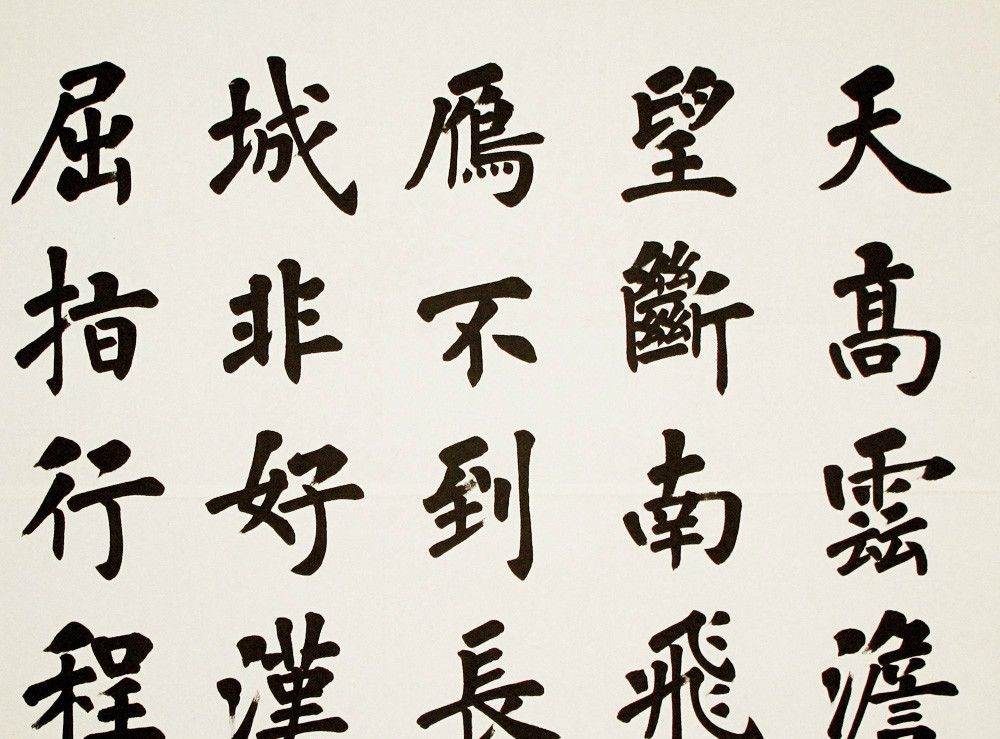 天髙雲澹
望斷南飛
鴈不到長
城非好漢
屈指行程